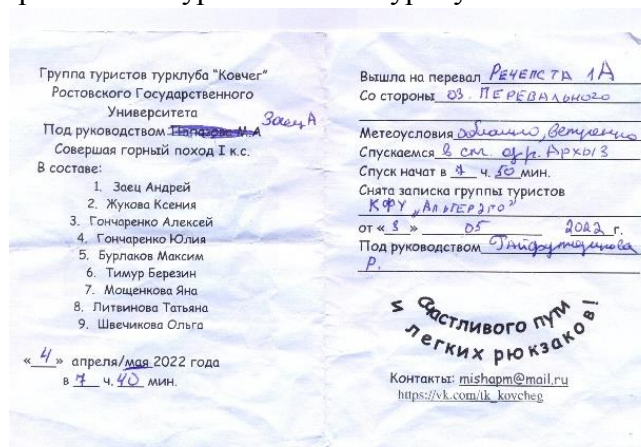 Группа туристов турклуба "Ковчег"
Ростовского Государственного
Университета
Под руководством Папазова М.А Заец А
Совершая горный поход I к.с.
В составе:
1. Заец Андрей
2. Жукова Ксения
3. Гончаренко Алексей
4. Гончаренко Юлия
5. Бурлаков Максим
6. Тимур Березин
7. Мощенкова Яна
8. Литвинова Татьяна
9. Швечикова Ольга
« 4 » апреля/мая 2022 года
в 7 ч. 40 мин.
Вышла на перевал Речепста 1А
Со стороны оз. Перевального
Метеоусловия облачно, ветренно
Спускаемся в ст. дол. Архыз
Спуск начат в 7 ч. 50 мин.
Снята записка группы туристов
КФУ „Альтерэго"
от « 3 » 05 2022 г.
Под руководством Гайфутдинова
Р.
Счастливого пути
и легких рюкзаков!
Контакты: mishapm@mail.ru
https://vk.com/tk_kovcheg